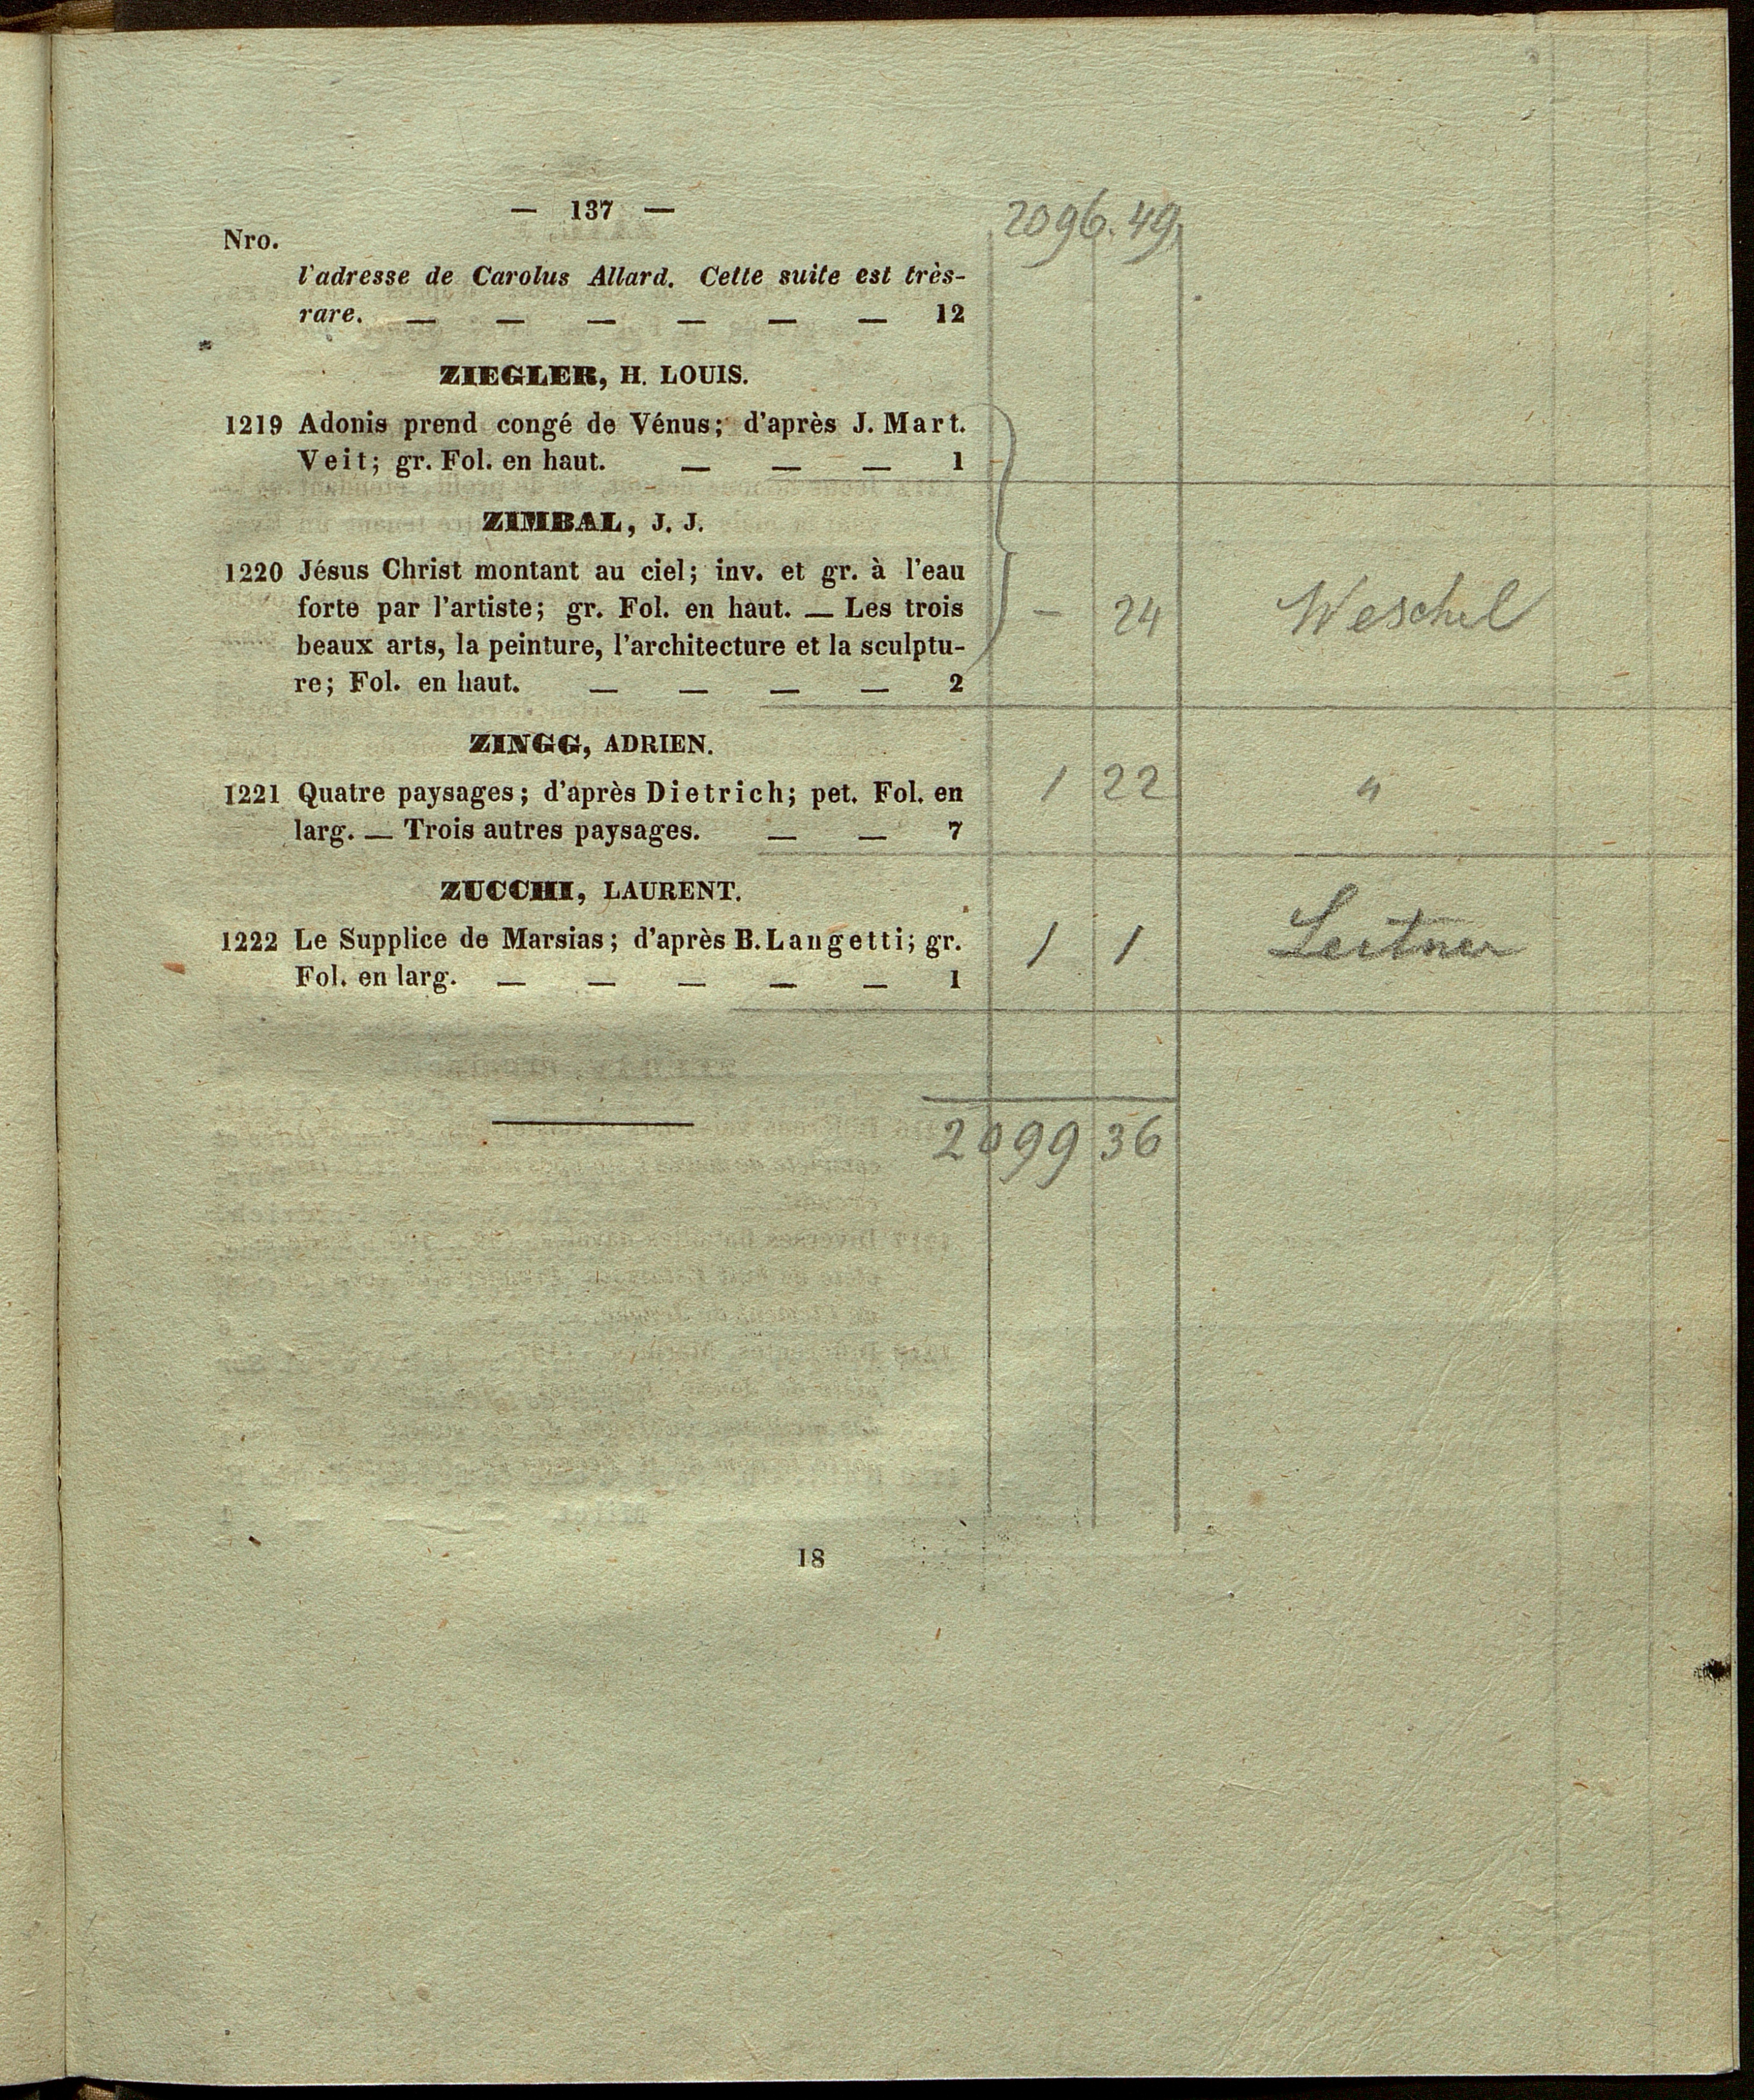 — 137 —
2096.49
Nro.
l'adresse de Carolus Allard. Cette suite est très-
rare. — — — — — — 12
ZIEGLER, H. LOUIS.
1219 Adonis prend congé de Vénus; d'après J. Mart.
Veit; gr. Fol. en haut. — — — 1
ZIMBAL, J. J.
1220 Jésus Christ montant au ciel; inv. et gr. à l'eau
forte par l'artiste; gr. Fol. en haut. — Les trois
— 24 Weschel
beaux arts, la peinture, l'architecture et la sculptu-
re; Fol. en haut. — — — — 2
ZINGG, ADRIEN.
1221 Quatre paysages; d'après Dietrich; pet. Fol. en
1 22 "
larg. — Trois autres paysages. — — 7
ZUCCHI, LAURENT.
1222 Le Supplice de Marsias; d'après B. Langetti; gr.
1 1 Leitner
Fol. en larg. — — — — — 1
2099 36
18